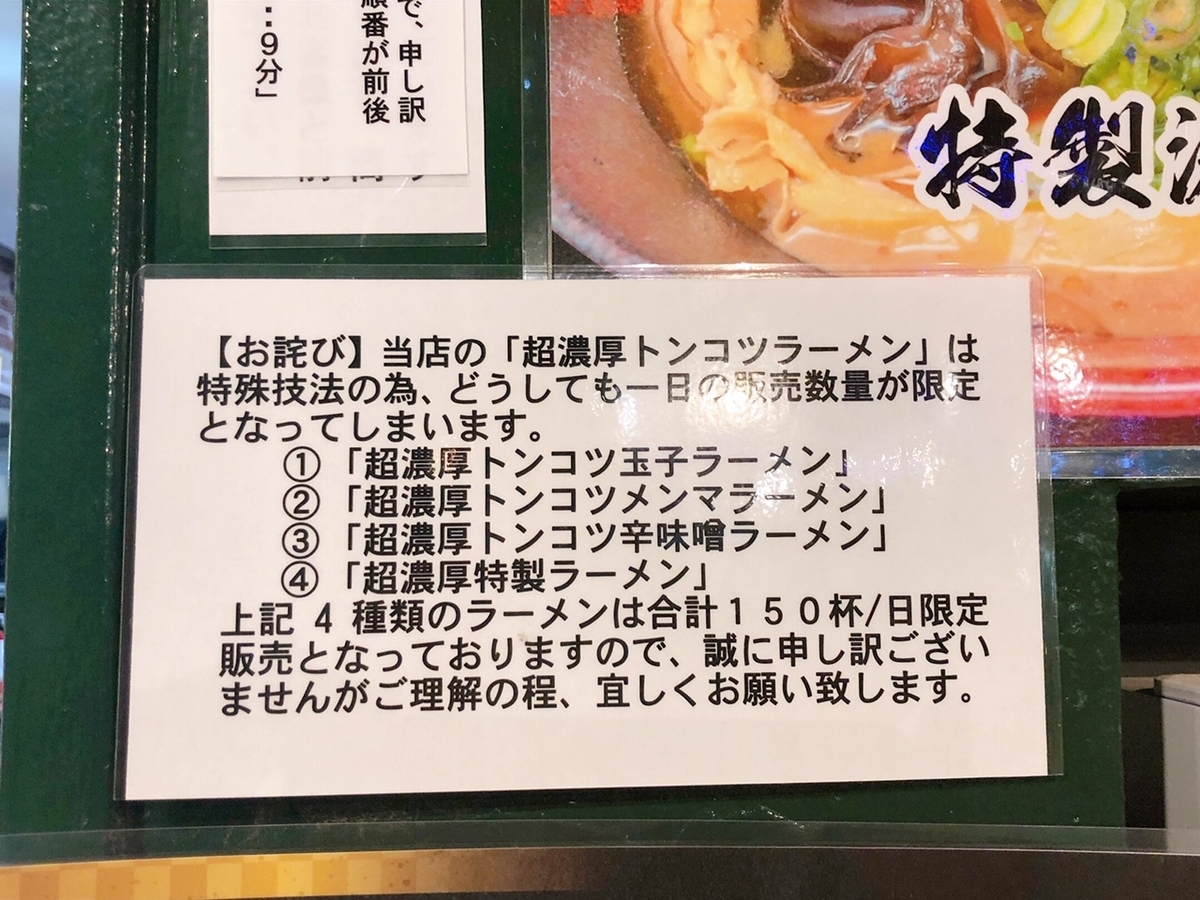 で、申し訳
順番が前後
‥9分」
特製
【お詫び】当店の「超濃厚トンコツラーメン」は
特殊技法の為、どうしても一日の販売数量が限定
となってしまいます。
①「超濃厚トンコツ玉子ラーメン」
②「超濃厚トンコツメンマラーメン」
③「超濃厚トンコツ辛味噌ラーメン」
④「超濃厚特製ラーメン」
上記 4 種類のラーメンは合計１５０杯/日限定
販売となっておりますので、誠に申し訳ござい
ませんがご理解の程、宜しくお願い致します。